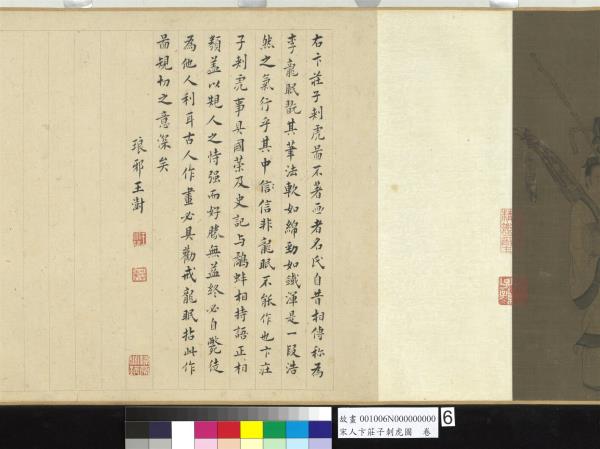 右卞莊子刺虎啚不著画者名氏自昔相傳称為
李龍眠䎱其筆法軟如綿勁如鐵渾是一段浩
然之氣行乎其中信信非龍眠不能作也卞莊
子刺虎事具國策及史記与鷸蚌相持語正相
類盖以規人之恃强而好勝無益終必自斃徒
為他人利耳古人作畫必具勸戒龍眠拈此作
啚規切之意深矣
琅邪王澍
故畫 001006N000000000
宋人卞莊子刺虎圖 卷
6